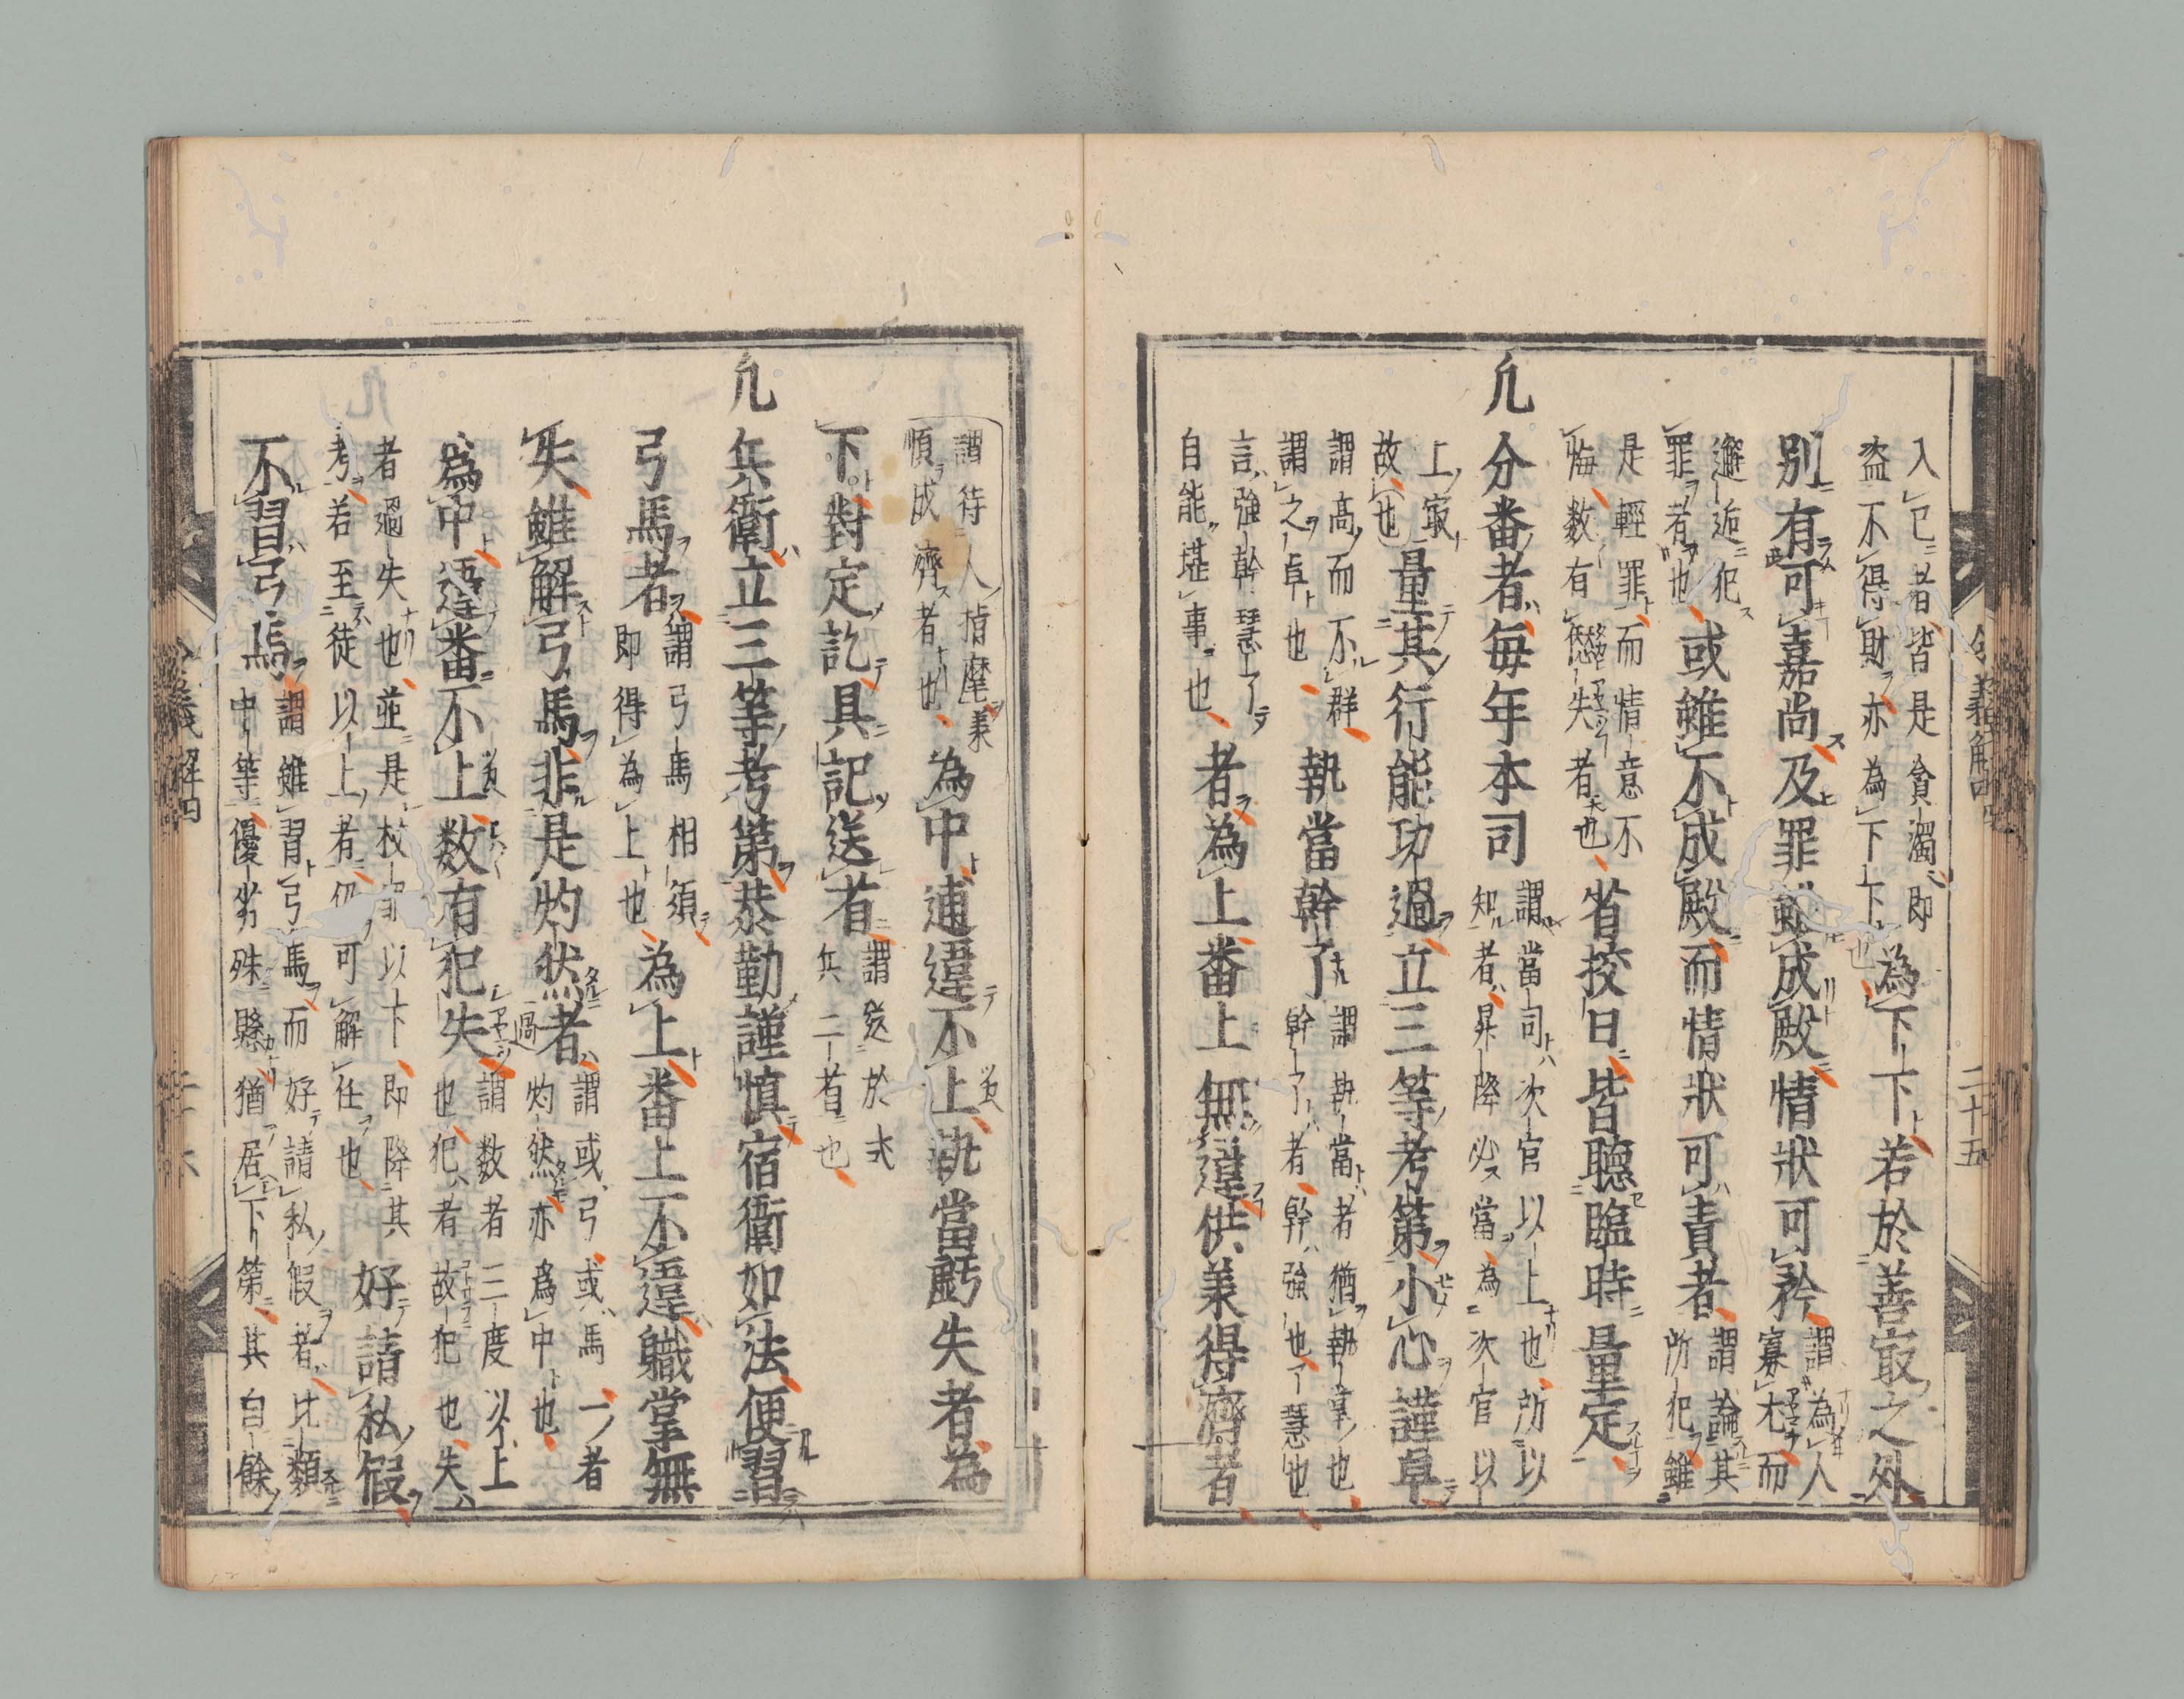 令義解四　二十五
入已者皆是貪濁即
盗不得財亦為下下也
為下下若於善㝡之外
別有可嘉尚及罪雖成殿情狀可矜
謂為人
寡尤而
邂逅犯
罪者也
或雖不成殿而情狀可責者
謂論其
所犯雖
是輕罪而情意不
悔数有愆失者也
省挍日皆聽臨時量定
凢分番者毎年本司
謂當司次官以上也所以
知者昇降必當為次官以
上㝡
故也
量其行能功過立三等考第小心謹卓
謂高而不群
謂之卓也
執當幹了
謂執當者猶執掌也
幹了者幹強也了慧也
言強幹慧了
自能堪事也
者為上番上無違供羕得濟者
謂待人指麾羕
順成濟者也
為中逋違不上執當虧失者為
下對定訖具記送省
謂送於式
兵二省也
凢兵衛立三等考第恭勤謹慎宿衛如法便習
弓馬者
謂弓馬相須
即得為上也
為上番上不違職掌無
失雖解弓馬非是灼然者
謂或弓或馬一者
灼然亦為中也
為中違番不上数有犯失
謂数者三度以上
也犯者故犯也失
者過失也並是校罪以下即降其
考若至徒以上者仍可解任也
好請私假
不習弓馬
謂雖習弓馬而好請私假者比類
中等優劣殊懸猶居下第其自餘
令義解四　二十六